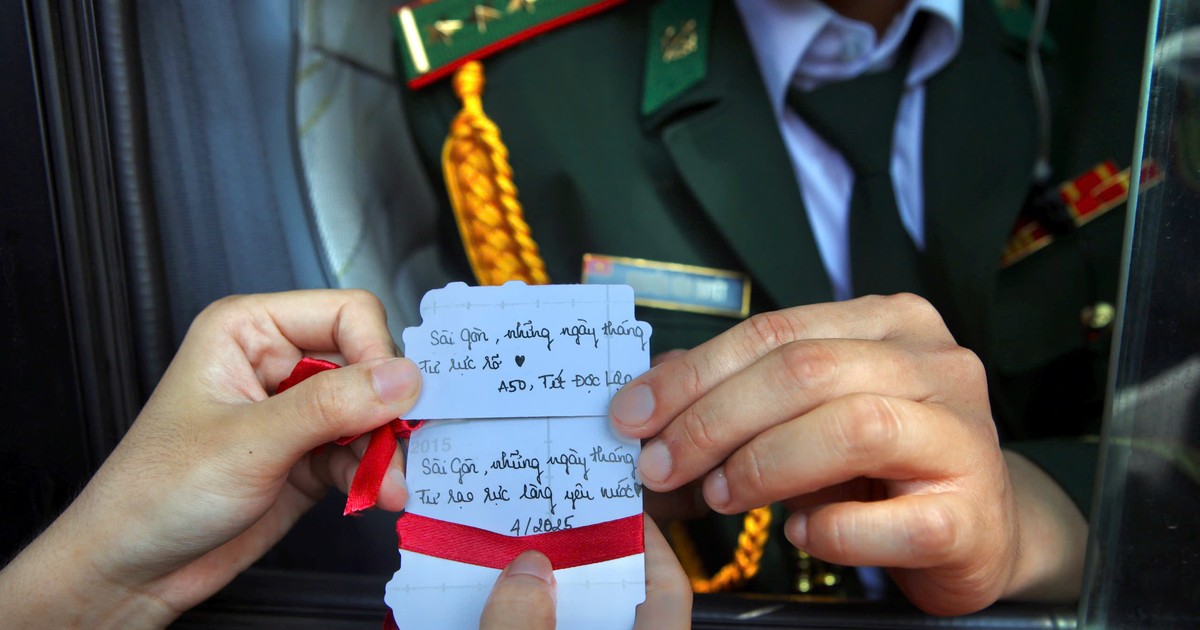 Sài Gòn, những ngày tháng
Tư rực rỡ ♥
A50, Tết Độc Lập
2015
Sài Gòn, những ngày tháng
Tư rạo rực lòng yêu nước
4/2025